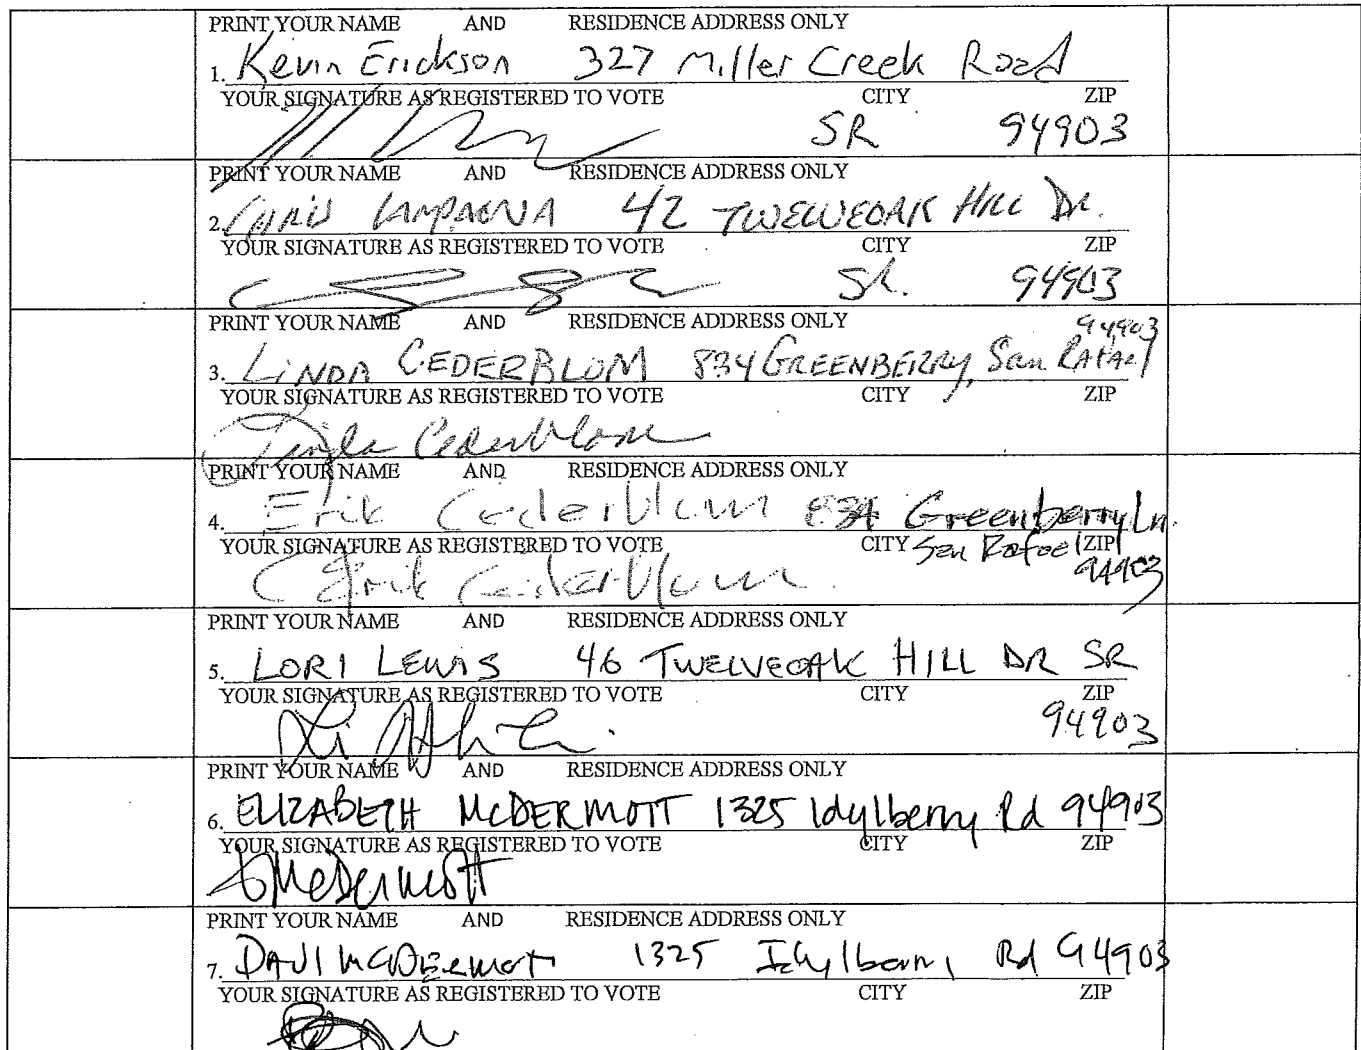 PRINT YOUR NAME AND RESIDENCE ADDRESS ONLY
1. Kevin Erickson 327 Miller Creek Road
YOUR SIGNATURE AS REGISTERED TO VOTE CITY ZIP
SR 94903
PRINT YOUR NAME AND RESIDENCE ADDRESS ONLY
2. CHRIS 42 TWELVEOAK HILL DR.
YOUR SIGNATURE AS REGISTERED TO VOTE CITY ZIP
SR. 94903
PRINT YOUR NAME AND RESIDENCE ADDRESS ONLY
94903
3. LINDA CEDERBLOM 834 GREENBERRY, San RAFAEL
YOUR SIGNATURE AS REGISTERED TO VOTE CITY ZIP
Linda Cederblom
PRINT YOUR NAME AND RESIDENCE ADDRESS ONLY
4. Erik Cederblom 834 Greenberry Ln.
YOUR SIGNATURE AS REGISTERED TO VOTE CITY San Rafael ZIP
Erik Cederblom 94903
PRINT YOUR NAME AND RESIDENCE ADDRESS ONLY
5. LORI LEWIS 46 TWELVEOAK HILL DR SR
YOUR SIGNATURE AS REGISTERED TO VOTE CITY ZIP
94903
PRINT YOUR NAME AND RESIDENCE ADDRESS ONLY
6. ELIZABETH McDERMOTT 1325 Idylberry Rd 94903
YOUR SIGNATURE AS REGISTERED TO VOTE CITY ZIP
McDermott
PRINT YOUR NAME AND RESIDENCE ADDRESS ONLY
7. McDermott 1325 Idylberry Rd 94903
YOUR SIGNATURE AS REGISTERED TO VOTE CITY ZIP